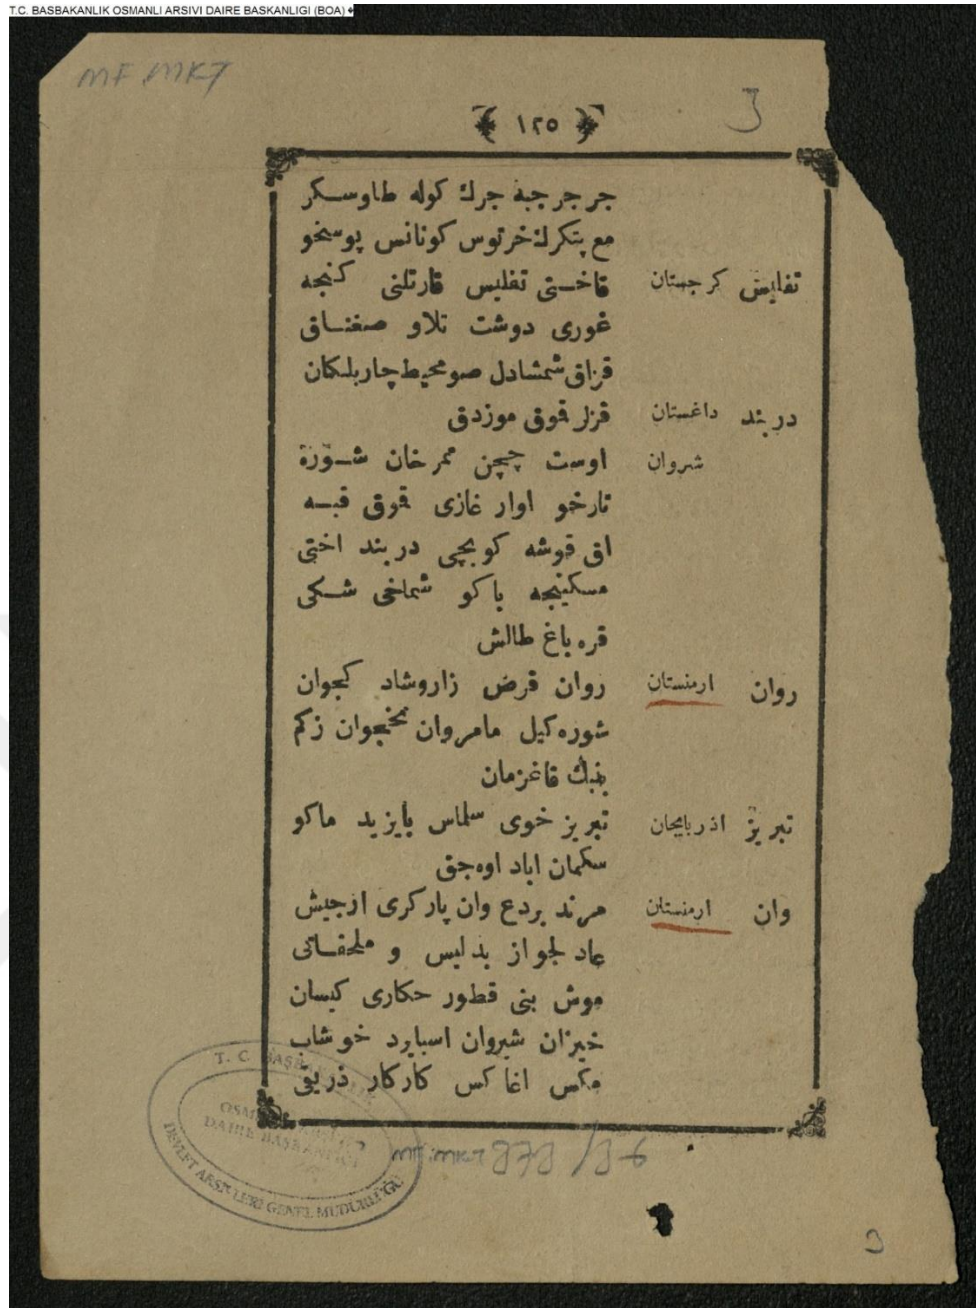 T.C. BASBAKANLIK OSMANLI ARSIVI DAIRE BASKANLIGI (BOA)
MF.MKT
3
﴿ ١٢٥ ﴾
جر جر جبه جرك كوله طاوسكر
مع پتكرك خرتوس كونانس پوسخو
تفليس كرجستان قاختی تفليس قارتلنی كنجه
غوری دوشت تلاو صغناق
قزاق شمشادل صو محيط چار بلكان
دربند داغستان قزلر قوق موزدق
شروان اوست چچن ممرخان شوزه
تارخو اوار غازی قوق قبه
اق قوشه كوبچی دربند اختی
مسكنيجه باكو شماخی شكی
قره باغ طالش
روان ارمنستان روان قرض زاروشاد كجوان
شوره كيل مامروان نخجوان زكم
پنبك قاغزمان
تبريز اذربايجان تبريز خوی سلماس بايزيد ماكو
سكمان اباد اوه جق
وان ارمنستان مرند بردع وان پاركری ارجيش
عادلجواز بدليس و ملحقاتی
موش بنی قطور حكاری كيسان
خيزان شيروان اسبايرد خوشاب
مكس اغاكس كاركار ذريقی
T. C. BAŞBAKANLIK
OSMANLI ARŞİVİ
DAİRE BAŞKANLIĞI
DEVLET ARŞİVLERİ GENEL MÜDÜRLÜĞÜ